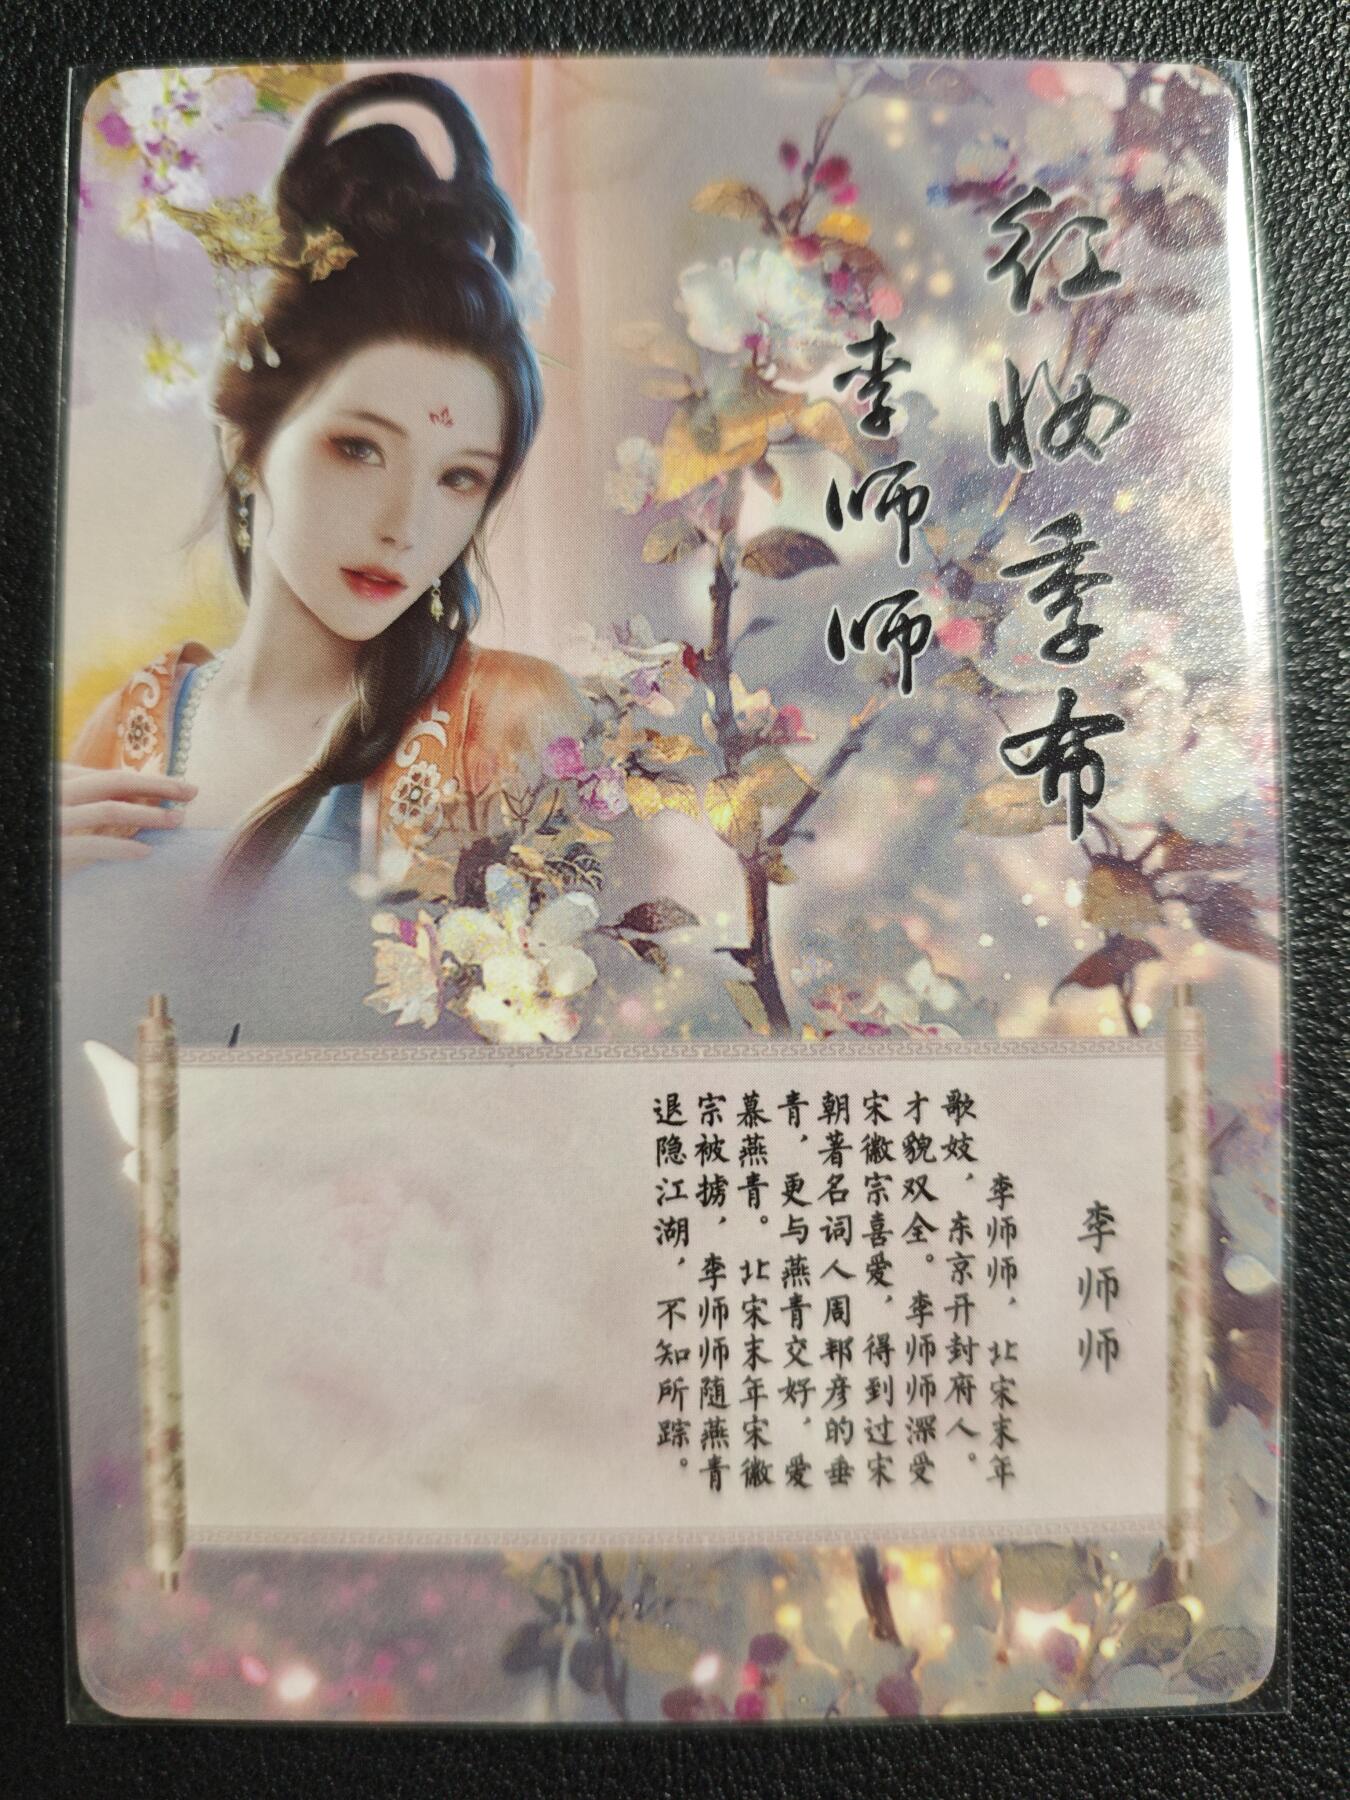 红妆季布
李师师
李师师
李师师，北宋末年
歌妓，东京开封府人。
才貌双全。李师师深受
宋徽宗喜爱，得到过宋
朝著名词人周邦彦的垂
青，更与燕青交好，爱
慕燕青。北宋末年宋徽
宗被掳，李师师随燕青
退隐江湖，不知所踪。